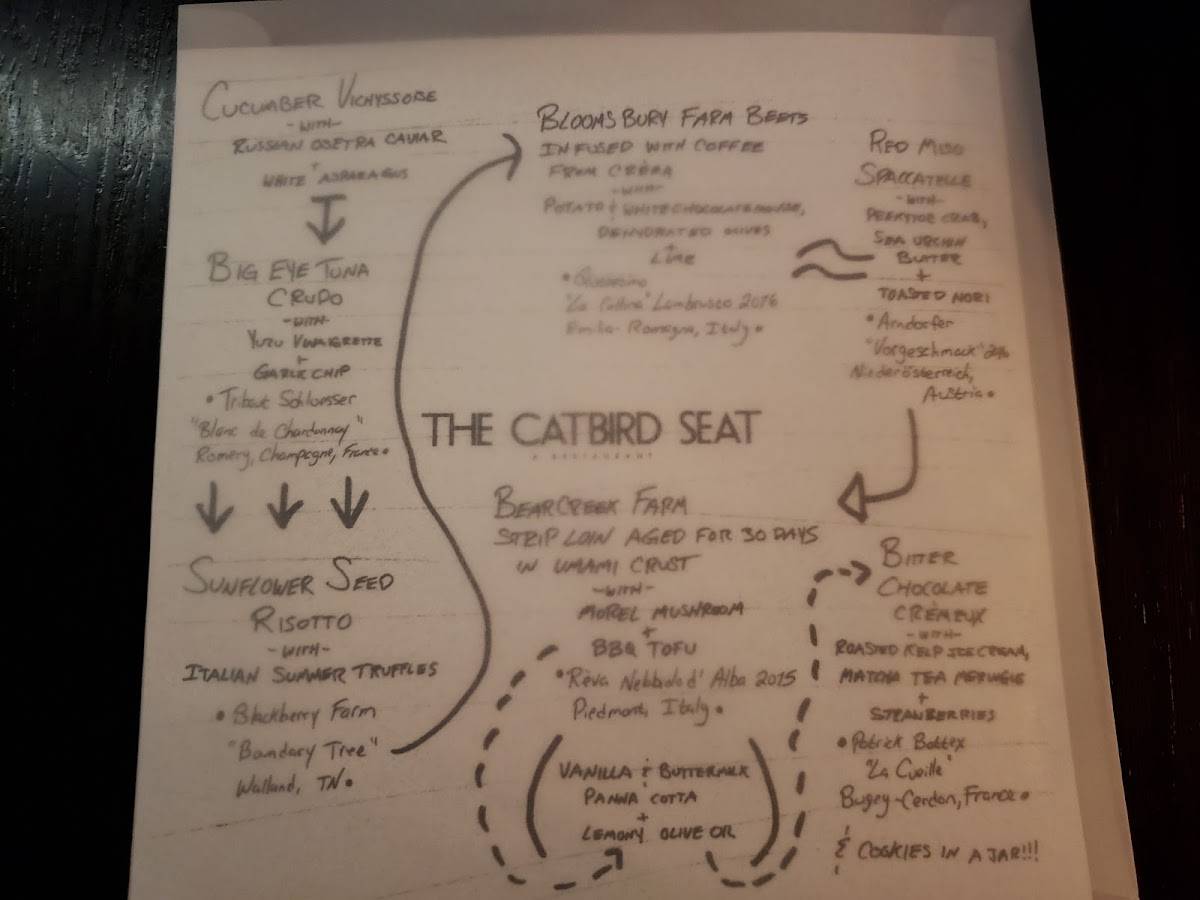 CUCUMBER VICHYSSOISE
-WITH-
RUSSIAN OSETRA CAVIAR
+
WHITE ASPARAGUS
BIG EYE TUNA
CRUDO
-WITH-
YUZU VINAIGRETTE
+
GARLIC CHIP
• Tribaut Schloesser
"Blanc de Chardonnay"
Romery, Champagne, France •
SUNFLOWER SEED
RISOTTO
-WITH-
ITALIAN SUMMER TRUFFLES
• Blackberry Farm
"Boundary Tree"
Walland, TN •
BLOOMSBURY FARM BEETS
INFUSED WITH COFFEE
FROM CRÈMA
-WITH-
POTATO & WHITE CHOCOLATE MOUSSE,
DEHYDRATED OLIVES
+
LIME
"La Collina" Lambrusco 2016
Emilia-Romagna, Italy •
RED MISO
SPACCATELLE
-WITH-
PEEKYTOE CRAB,
SEA URCHIN
BUTTER
+
TOASTED NORI
• Arndorfer
"Vorgeschmack" 2016
Niederösterreich,
Austria •
THE CATBIRD SEAT
A RESTAURANT
BEAR CREEK FARM
STRIP LOIN AGED FOR 30 DAYS
IN UMAMI CRUST
-WITH-
MOREL MUSHROOM
+
BBQ TOFU
• Rèva Nebbiolo d'Alba 2015
Piedmont, Italy •
VANILLA & BUTTERMILK
PANNA COTTA
+
LEMONY OLIVE OIL
BITTER
CHOCOLATE
CRÈMEUX
-WITH-
ROASTED KELP ICE CREAM,
MATCHA TEA MERINGUE
+
STRAWBERRIES
• Patrick Bottex
"La Cueille"
Bugey-Cerdon, France •
& COOKIES IN A JAR!!!